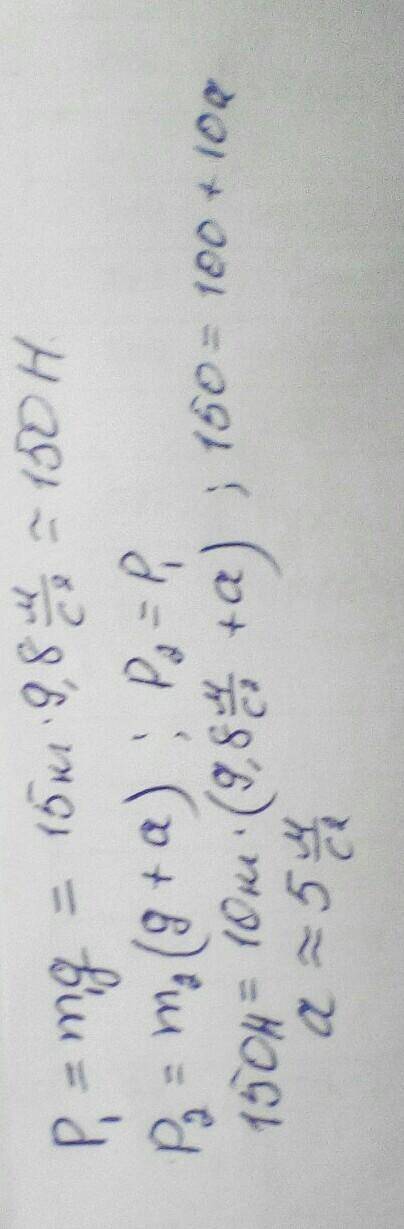 P₁ = m₁g = 15кг·9,8 м/с² ≈ 150 Н
P₂ = m₂(g + a) ; P₂ = P₁
150Н = 10кг·(9,8 м/с² + a) ; 150 = 100 + 10a
a ≈ 5 м/с²